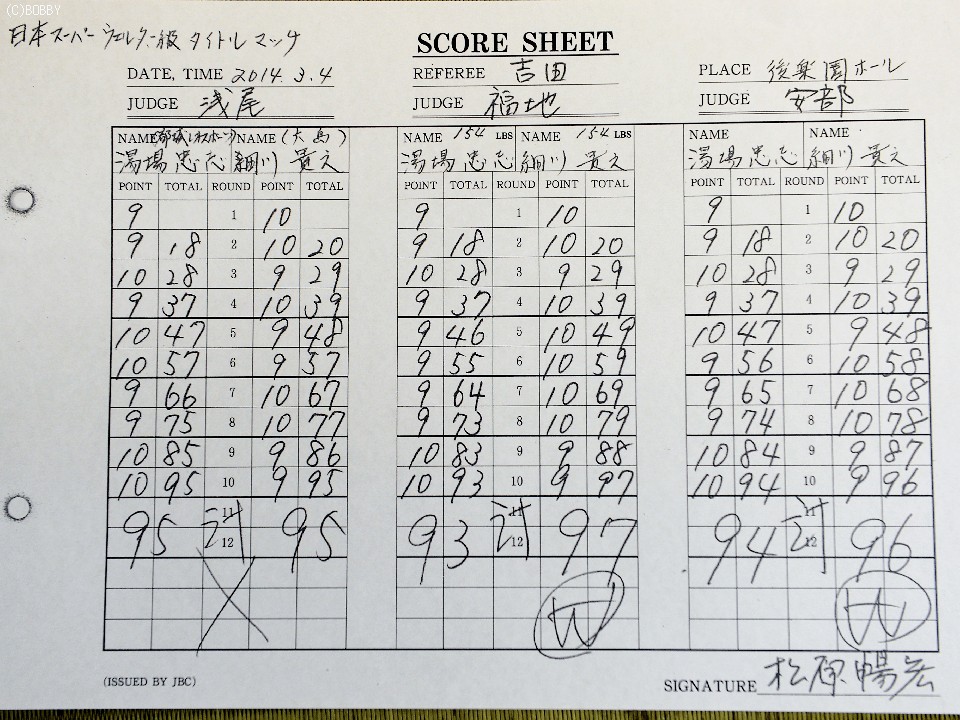 (C)BOBBY
日本スーパーウェルター級タイトルマッチ
SCORE SHEET
DATE, TIME 2014.3.4 REFEREE 吉田 PLACE 後楽園ホール
JUDGE 浅尾 JUDGE 福地 JUDGE 安部
NAME NAME (大島) NAME 154 LBS NAME 154 LBS NAME NAME
湯場忠志 細川貴之 湯場忠志 細川貴之 湯場忠志 細川貴之
POINT TOTAL ROUND POINT TOTAL POINT TOTAL ROUND POINT TOTAL POINT TOTAL ROUND POINT TOTAL
9 1 10 9 1 10 9 1 10
9 18 2 10 20 9 18 2 10 20 9 18 2 10 20
10 28 3 9 29 10 28 3 9 29 10 28 3 9 29
9 37 4 10 39 9 37 4 10 39 9 37 4 10 39
10 47 5 9 48 9 46 5 10 49 10 47 5 9 48
10 57 6 9 57 9 55 6 10 59 9 56 6 10 58
9 66 7 10 67 9 64 7 10 69 9 65 7 10 68
9 75 8 10 77 9 73 8 10 79 9 74 8 10 78
10 85 9 9 86 10 83 9 9 88 10 84 9 9 87
10 95 10 9 95 10 93 10 9 97 10 94 10 9 96
11 11 11
95 計 95 93 計 97 94 計 96
12 12 12
X W W
(ISSUED BY JBC) SIGNATURE 松原暢宏